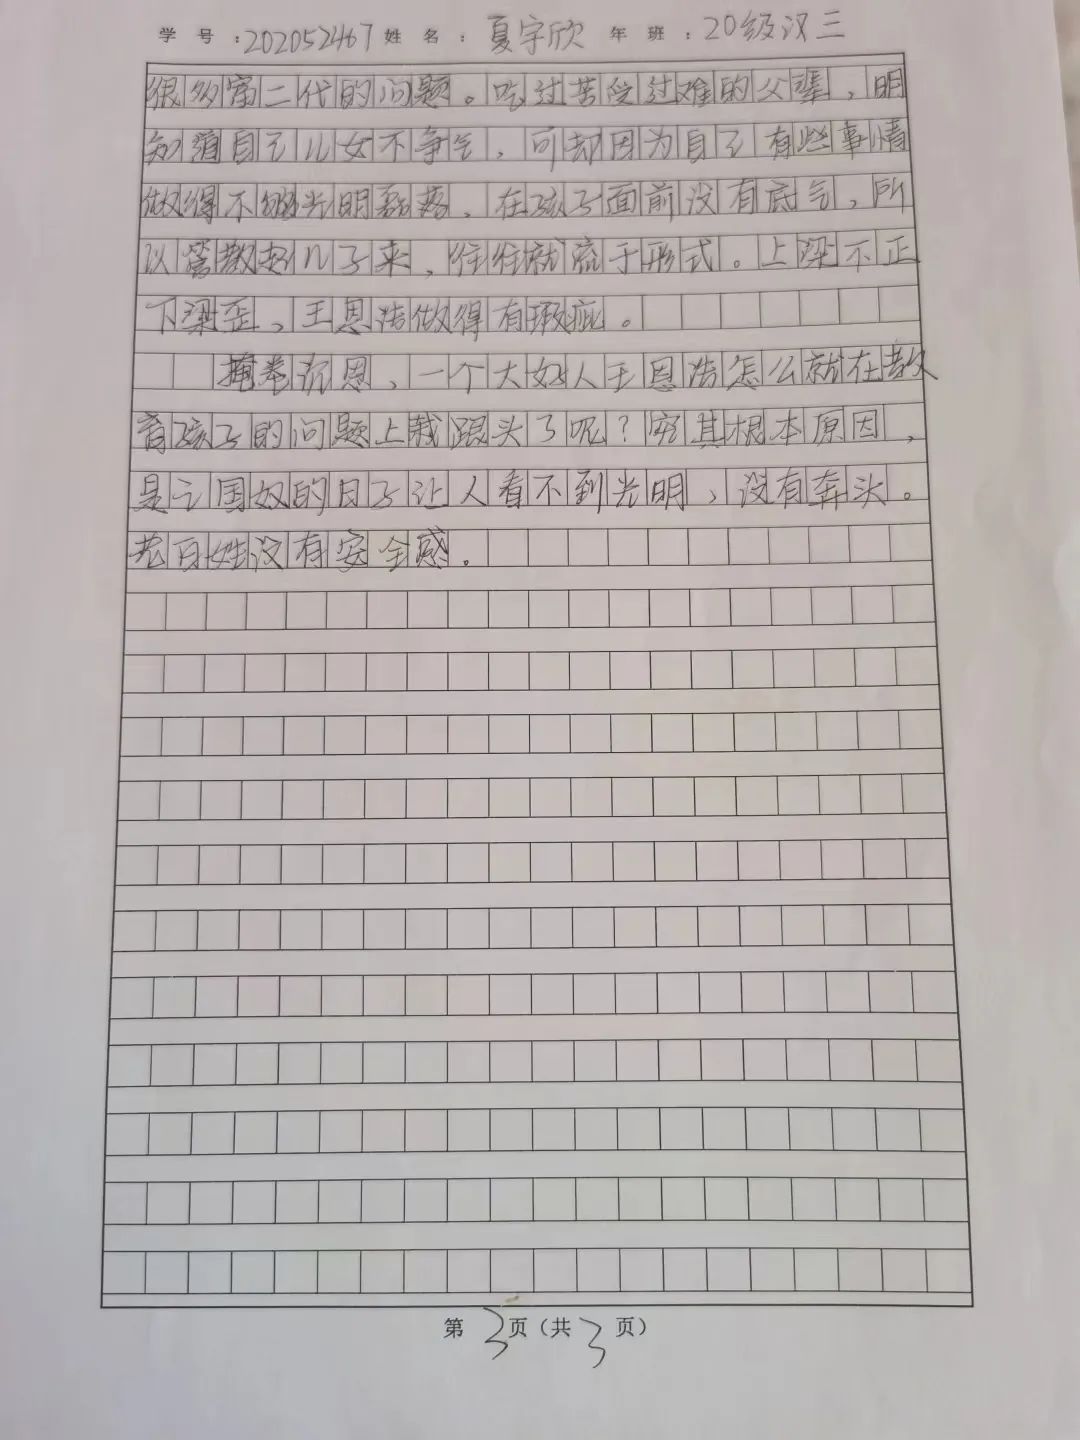 学 号 :202052467 姓 名 : 夏宇欣 年 班 : 20级汉三
很多富二代的问题。吃过苦受过难的父辈,明
知道自己儿女不争气,可却因为自己有些事情
做得不够光明磊落,在孩子面前没有底气,所
以管教起儿子来,往往就流于形式。上梁不正
下梁歪,王恩浩做得有瑕疵。
掩卷沉思,一个大好人王恩浩怎么就在教
育孩子的问题上栽跟头了呢?究其根本原因,
是亡国奴的日子让人看不到光明,没有奔头。
老百姓没有安全感。
第 3 页(共 3 页)